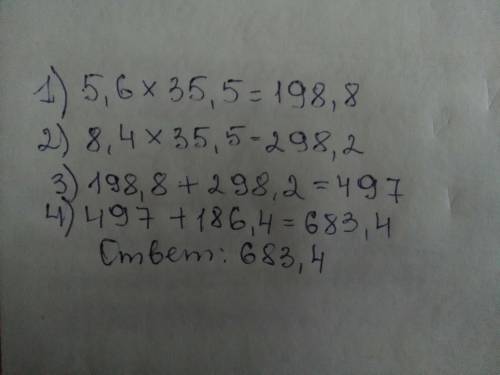 1) 5,6 × 35,5 = 198,8
2) 8,4 × 35,5 - 298,2
3) 198,8 + 298,2 = 497
4) 497 + 186,4 = 683,4
Ответ: 683,4